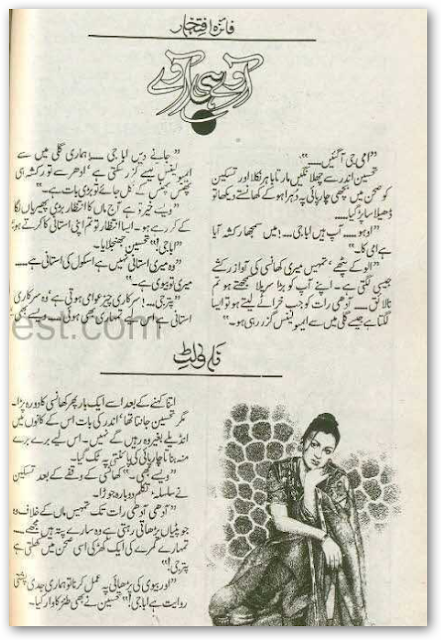 فائزہ افتخار
"امی جی آگئیں۔۔۔۔"
تحسین اندر سے چھلانگیں مارتا باہر نکلا اور تسکین
کو صحن میں بچھی چارپائی پہ دُہرا ہو کے کھانستے دیکھا تو
ڈھیلا سا پڑ گیا۔۔۔۔
"اوہو۔۔۔۔ آپ ہیں ابا جی۔۔۔۔! میں سمجھا رکشہ آیا
ہے امی کا۔"
"الو کے پٹھے، تمہیں میری کھانسی کی آواز رکشے
جیسی لگتی ہے۔ اپنے آپ کو بڑا سریلا سمجھتے ہو تم
نالائق۔۔۔۔ آدھی رات کو جب خراٹے لیتے ہو تو ایسا
لگتا ہے جیسے گلی میں سے ایمبولینس گزر رہی ہو۔"
"جانے دیں ابا جی۔۔۔۔! ہماری گلی میں سے
ایمبولینس کیسے گزر سکتی ہے، ادھر سے تو رکشہ ہی
پھنس پھنس کے نکل جائے تو بڑی بات ہے۔"
"ویسے خیر تو ہے آج ماں کا انتظار بڑی پھیریاں لگا
کے کر رہے ہو۔ ایسا انتظار تو تم اپنی استانی کا کرتے ہو
"ابا جی!" تحسین جھنجلایا۔
"وہ میری استانی نہیں ہے اسکول کی استانی ہے۔۔۔۔
میری تو بیوی ہے۔"
"پتر جی۔۔۔۔! سرکاری چیز عوامی ہوتی ہے، وہ سرکاری
استانی ہے اس لیے تمہاری بھی ہوئی۔ ویسے بھی
est.com
ناولٹ
اتنا کہنے کے بعد اسے ایک بار پھر کھانسی کا دورہ پڑا۔
مگر تحسین جانتا تھا، اندر کی بات اس کے کانوں میں
انڈیلے بغیر وہ رہیں گے نہیں۔ اس لیے برے برے
منہ بناتا چارپائی کی پائنتی پہ ٹک گیا۔
"ویسے بھی۔" کھانسی کے وقفے کے بعد تسکین
نے سلسلہ تکلم دوبارہ جوڑا۔
"آدھی آدھی رات تک تمہیں ماں کے خلاف وہ
جو پٹیاں پڑھاتی رہتی ہے وہ سارے پتہ ہیں مجھے۔
تمہارے کمرے کی ایک کھڑکی اسی صحن میں کھلتی ہے
پتر جی!"
"اور بیوی کی پڑھائی پہ عمل کرنا تو ہماری جدی پشتی
روایت ہے ابا جی!" تحسین نے بھی طنز کا وار کیا۔